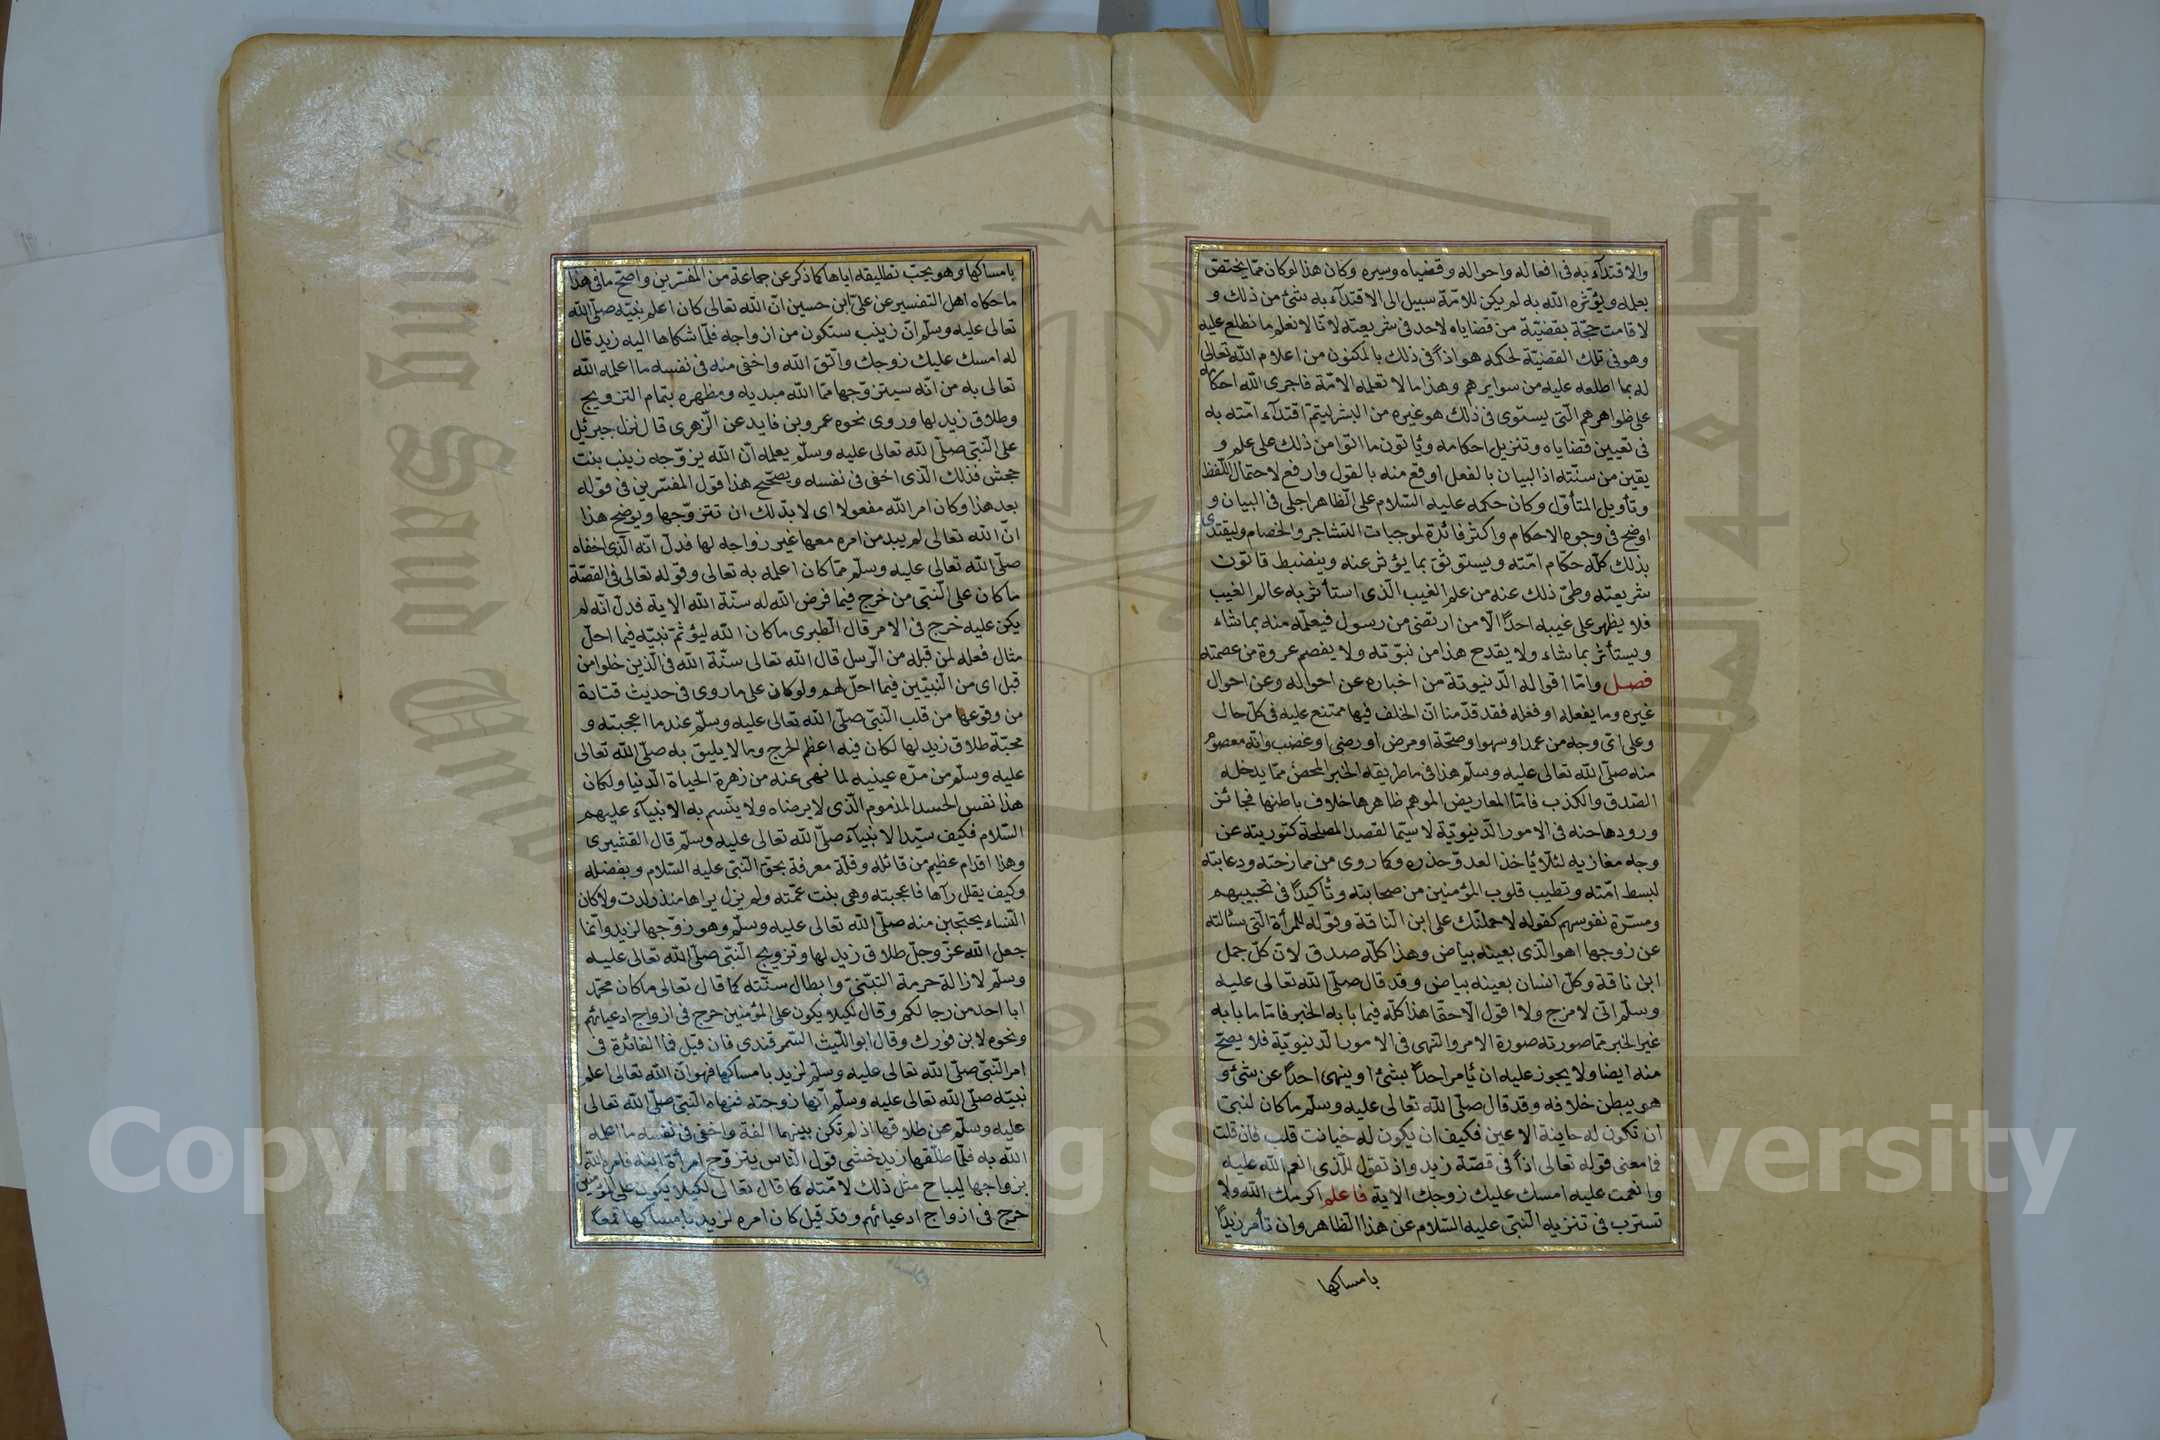 والاقتدآء به فى افعاله واحواله وقضياه وسيره وكان هذا لوكان ممّا يختصّ
بعلمه ويؤثره الله به لم يكن للامّة سبيل الى الاقتدآء به بشئ من ذلك و
لا قامت حجّة بقضيّة من قضاياه لاحد فى شريعته لانّا لا نعلم ما نطلع عليه
وهو فى تلك القضيّة لحكمه هو اذاً فى ذلك بالمكنون من اعلام الله تعالى
له بما اطلعه عليه من سوايرهم وهذا ما لا تعلمه الامّة فاجرى الله احكامه
على ظواهرهم الّتى يستوى فى ذلك هو غيره من البشر ليتمّ اقتدآء امّته به
فى تعيين قضاياه وتنزيل احكامه ويأتون ما اتوا من ذلك على علم و
يقين من سنّته اذ البيان بالفعل اوقع منه بالقول وارفع لاحتمال اللّفظ
وتأويل المتأوّل وكان حكمه عليه السّلام على الظّاهر اجلى فى البيان و
اوضح فى وجوه الاحكام واكثر فائدة لموجبات التشاجر والخصام وليقتدى
بذلك كلّه حكّام امّته ويستوثق بما يؤثر عنه وينضبط قانون
شريعته وطىّ ذلك عنه من علم الغيب الّذى استأثر به عالم الغيب
فلا يظهر على غيبه احدًا الّا من ارتضى من رسول فيعلّمه منه بما شاء
ويستأثر بما شاء ولا يقدح هذا من نبوّته ولا يفصم عروة من عصمته
فصل وامّا اقواله الدّنيويّة من اخباره عن احواله وعن احوال
غيره وما يفعله او فعله فقد قدّمنا انّ الخلف فيها ممتنع عليه فى كلّ حال
وعلى اىّ وجه من عمد او سهو او صحّة او مرض او رضى او غضب وانّه معصوم
منه صلّى الله تعالى عليه وسلّم هذا فى ما طريقه الخبر المحض ممّا يدخله
الصّدق والكذب فامّا المعاريض الموهم ظاهرها خلاف باطنها فجائز
ورودها منه فى الامور الدّنيويّة لا سيّما لقصد المصلحة كتوريته عن
وجه مغازيه لئلّا يأخذ العدوّ حذره وكما روى من ممازحته ودعابته
لبسط امّته وتطيب قلوب المؤمنين من صحابته وتأكيدًا فى تحبيبهم
ومسرّة نفوسهم كقوله لاحملنّك على ابن النّاقة وقوله للمرأة الّتى سئالته
عن زوجها اهو الّذى بعينه بياض وهذا كلّه صدق لانّ كلّ جمل
ابن ناقة وكلّ انسان بعينه بياض وقد قال صلّى الله تعالى عليه
وسلّم انّى لامزح ولا اقول الّا حقّا هذا كلّه فيما بابه الخبر فامّا ما بابه
غير الخبر ممّا صورته صورة الامر والنّهى فى الامور الدّنيويّة فلا يصحّ
منه ايضا ولا يجوز عليه ان يأمر احداً بشئ او ينهى احداً عن شئ و
هو يبطن خلافه وقد قال صلّى الله تعالى عليه وسلّم ما كان لنبىّ
ان تكون له خاينة الاعين فكيف ان يكون له خيانت قلب فان قلت
فما معنى قوله تعالى اذاً فى قصّة زيد واذ تقول للّذى انعم الله عليه
وانعمت عليه امسك عليك زوجك الاية فاعلم اكرمك الله ولا
تسترب فى تنزيه النّبى عليه السّلام عن هذا الظّاهر وان تأمر زيدًا
بامساكها
بامساكها وهو يحبّ تطليقه اياها كما ذكر عن جماعة من المفسّرين واصحّ ما فى هذا
ما حكاه اهل التفسير عن علىّ ابن حسين انّ الله تعالى كان اعلم نبيّه صلّى الله
تعالى عليه وسلّم انّ زينب ستكون من ازواجه فلمّا شكاها اليه زيد قال
له امسك عليك زوجك واتّق الله واخفى منه فى نفسه ما اعلمه الله
تعالى به من انّه سيتزوّجها ممّا الله مبديه ومظهره بتمام التزويج
وطلاق زيد لها وروى نحوه عمرو بن فايد عن الزّهرى قال نزل جبرئيل
على النّبى صلّى الله تعالى عليه وسلّم يعلمه انّ الله يزوّجه زينب بنت
جحش فذلك الّذى اخفى فى نفسه ويصحّح هذا قول المفسّرين فى قوله
بعد هذا وكان امر الله مفعولا اى لا بدّ لك ان تتزوّجها ويوضح هذا
انّ الله تعالى لم يبد من امره معها غير زواجه لها فدلّ انّه الّذى اخفاه
صلّى الله تعالى عليه وسلّم ممّا كان اعلمه به تعالى وقوله تعالى فى القصّة
ما كان على النّبى من حرج فيما فرض الله له سنّة الله الاية فدلّ انّه لم
يكن عليه حرج فى الامر قال الطّبرى ما كان الله ليؤثّم نبيّه فيما احلّ
مثال فعله لمن قبله من الرّسل قال الله تعالى سنّة الله فى الّذين خلوا من
قبل اى من النّبيّين فيما احلّ لهم ولو كان على ما روى فى حديث قتادة
من وقوعها من قلب النّبى صلّى الله تعالى عليه وسلّم عندما اعجبته و
محبّة طلاق زيد لها لكان فيه اعظم الحرج وما لا يليق به صلّى الله تعالى
عليه وسلّم من مدّه عينيه لما نهى عنه من زهرة الحياة الدّنيا ولكان
هذا نفس الحسد المذموم الّذى لا يرضاه ولا يتّسم به الانبيآء عليهم
السّلام فكيف سيّد الانبيآء صلّى الله تعالى عليه وسلّم قال القشيرى
وهذا اقدام عظيم من قائله وقلّة معرفة بحقّ النّبى عليه السّلام وبفضله
وكيف يقال رآها فاعجبته وهى بنت عمّته ولم يزل يراها منذ ولدت ولا كان
النّساء يحتجبن منه صلّى الله تعالى عليه وسلّم وهو زوّجها لزيد وانّما
جعل الله عزّ وجلّ طلاق زيد لها وتزويج النّبى صلّى الله تعالى عليه
وسلّم لازالة حرمة التّبنّى وابطال سنّته كما قال تعالى ما كان محمّد
ابا احد من رجالكم وقال لكيلا يكون على المؤمنين حرج فى ازواج ادعيائهم
ونحوه لابن فورك وقال ابو اللّيث السّمرقندى فان قيل فما الفائدة فى
امر النّبىّ صلّى الله تعالى عليه وسلّم لزيد بامساكها فهو انّ الله تعالى اعلم
نبيّه صلّى الله تعالى عليه وسلّم انّها زوجته فنهاه النّبىّ صلّى الله تعالى
عليه وسلّم عن طلاقها اذ لم تكن بينهما الفة واخفى فى نفسه ما اعلمه
الله به فلمّا طلّقها زيد خشى قول النّاس يتزوّج امرأة ابنه فامره الله
بزواجها ليباح مثل ذلك لامّته كما قال تعالى لكيلا يكون على المؤمنين
حرج فى ازواج ادعيائهم وقد قيل كان امره لزيد بامساكها قمعاً
Copyright King Saud University
King Saud University
1957